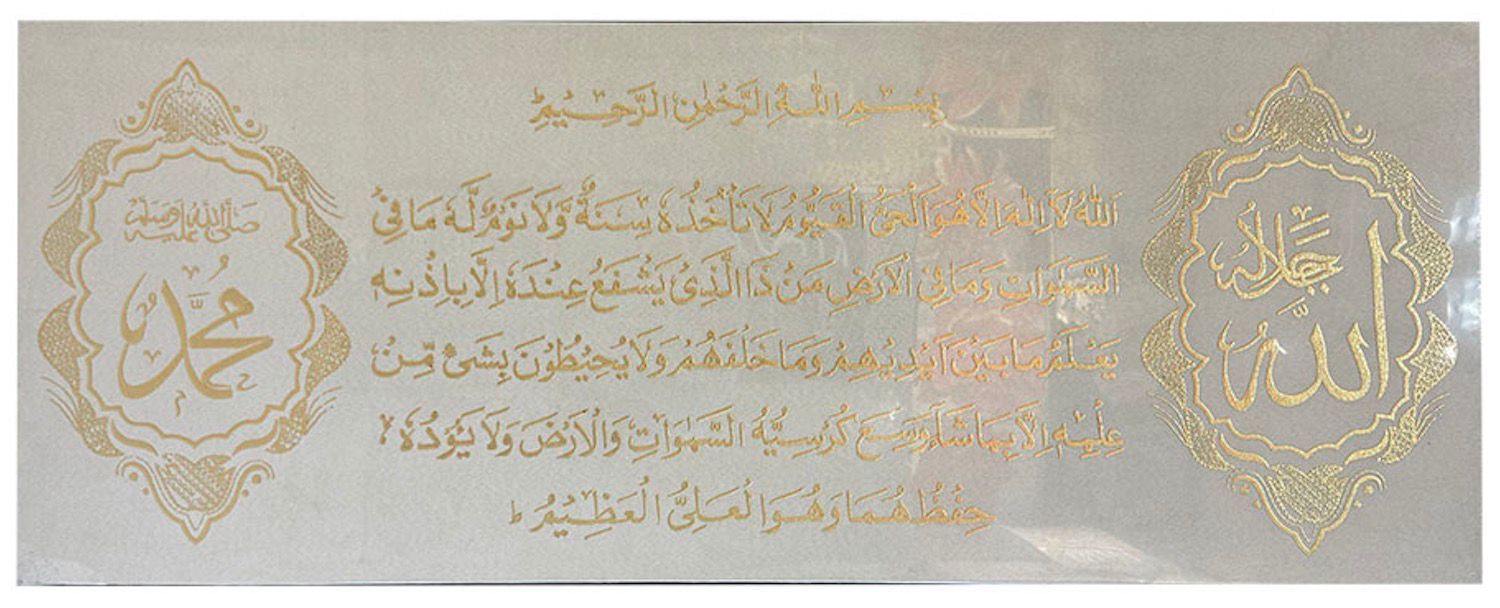 بِسْمِ اللهِ الرَّحْمٰنِ الرَّحِيْمِ
اَللهُ لَآ اِلٰهَ اِلَّا هُوَ اَلْحَیُّ الْقَیُّوْمُ لَا تَاْخُذُهٗ سِنَةٌ وَّلَا نَوْمٌ لَّهٗ مَا فِی
السَّمٰوَاتِ وَمَا فِی الْاَرْضِ مَنْ ذَا الَّذِیْ یَشْفَعُ عِنْدَهٗ اِلَّا بِاِذْنِهٖ
یَعْلَمُ مَا بَیْنَ اَیْدِیْهِمْ وَمَا خَلْفَهُمْ وَلَا یُحِیْطُوْنَ بِشَیْءٍ مِّنْ
عِلْمِهٖ اِلَّا بِمَا شَآءَ وَسِعَ كُرْسِیُّهُ السَّمٰوَاتِ وَالْاَرْضَ وَلَا یَؤُدُهٗ
حِفْظُهُمَا وَهُوَ الْعَلِیُّ الْعَظِیْمُ ط
الله
جَلَّ جَلَالُهُ
صَلَّی اللهُ عَلَیْهِ وَسَلَّمَ
مُحَمَّد